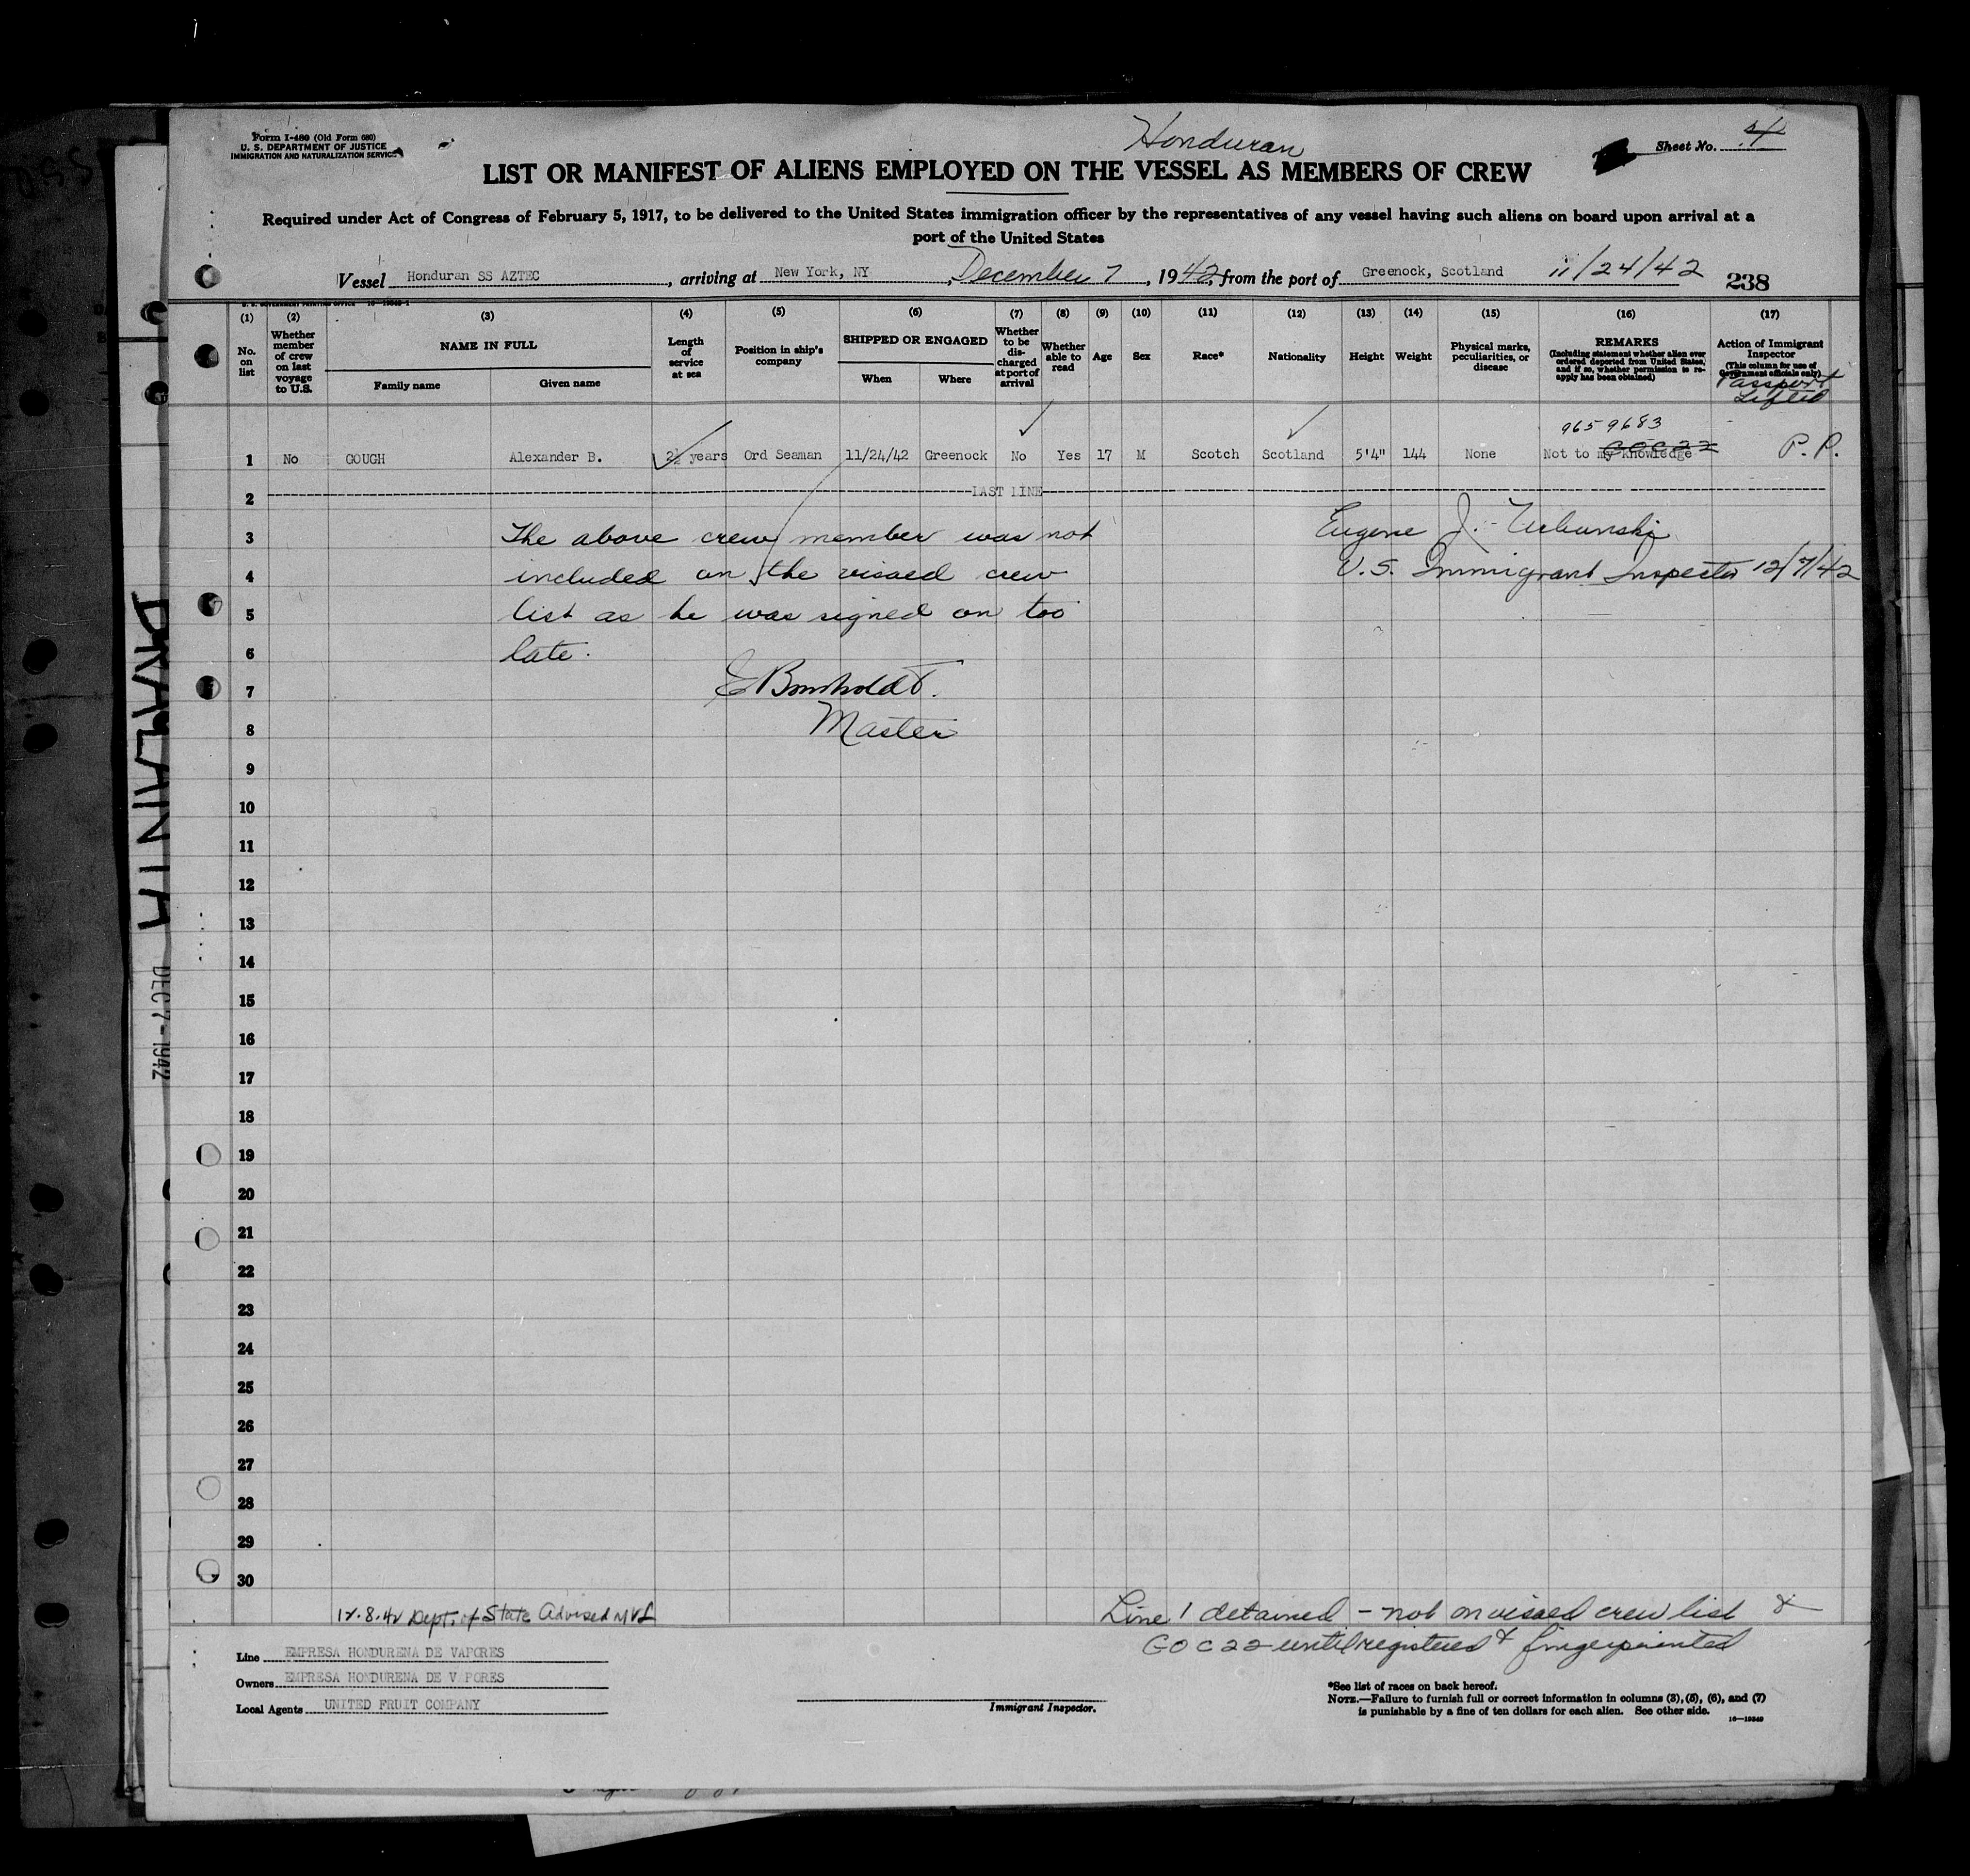 Form I-480 (Old Form 680)
U. S. DEPARTMENT OF JUSTICE
IMMIGRATION AND NATURALIZATION SERVICE
Honduran
Sheet No. 4
LIST OR MANIFEST OF ALIENS EMPLOYED ON THE VESSEL AS MEMBERS OF CREW
Required under Act of Congress of February 5, 1917, to be delivered to the United States immigration officer by the representatives of any vessel having such aliens on board upon arrival at a
port of the United States
Vessel Honduran SS AZTEC, arriving at New York, NY, December 7, 1942, from the port of Greenock, Scotland 11/24/42
238
(1) (2) (3) (4) (5) (6) (7) (8) (9) (10) (11) (12) (13) (14) (15) (16) (17)
No. on list
Whether member of crew on last voyage to U.S.
NAME IN FULL
Family name Given name
Length of service at sea
Position in ship's company
SHIPPED OR ENGAGED
When Where
Whether to be discharged at port of arrival
Whether able to read
Age
Sex
Race*
Nationality
Height
Weight
Physical marks, peculiarities, or disease
REMARKS
(Including statement whether alien ever ordered deported from United States, and if so, whether permission to reapply has been obtained)
Action of Immigrant Inspector
(This column for use of Government officials only)
Passport
Lifted
965 9683
1 No GOUGH Alexander B. 2½ years Ord Seaman 11/24/42 Greenock No Yes 17 M Scotch Scotland 5'4" 144 None Not to my knowledge GOC22 P. P.
2 LAST LINE
3 The above crew member was not Eugene J. Urbanski
4 included on the visaed crew U.S. Immigrant Inspector 12/7/42
5 list as he was signed on too
6 late.
7
8 Master
9
10
11
12
13
14
15
16
17
18
19
20
21
22
23
24
25
26
27
28
29
30
DEC 7-1942
12.8.42 Dept. of State Advised
Line 1 detained - not on visaed crew list &
GOC 22 until registered & fingerprinted
Line EMPRESA HONDURENA DE VAPORES
Owners EMPRESA HONDURENA DE V PORES
Local Agents UNITED FRUIT COMPANY
Immigrant Inspector.
*See list of races on back hereof.
NOTE.—Failure to furnish full or correct information in columns (3), (5), (6), and (7)
is punishable by a fine of ten dollars for each alien. See other side.
16—19349